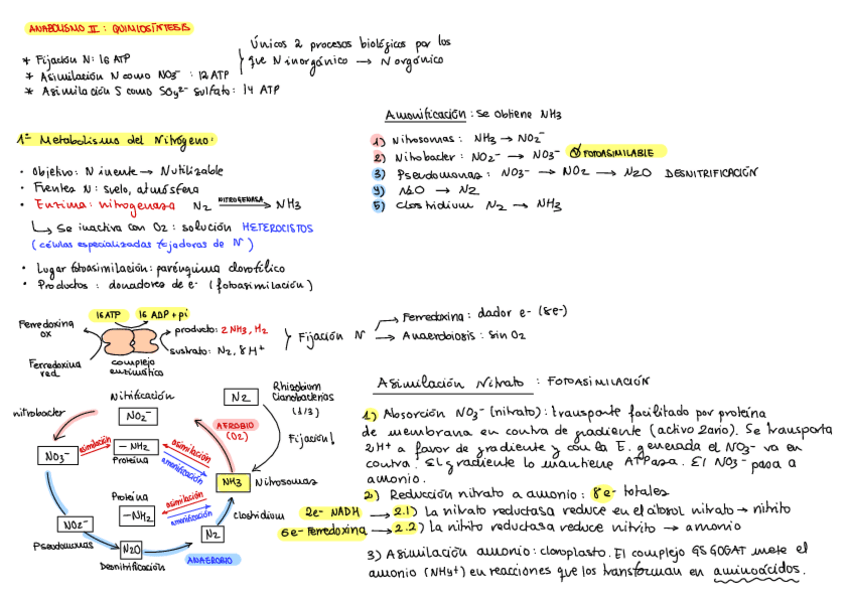 ANABOLISMO II: QUIMIOSÍNTESIS
* Fijación N: 16 ATP
* Asimilación N como NO3⁻ : 12 ATP
* Asimilación S como SO4²⁻ sulfato: 14 ATP
Únicos 2 procesos biológicos por los
que N inorgánico → N orgánico
1º Metabolismo del Nitrógeno:
• Objetivo: N inerte → N utilizable
• Fuentes N: suelo, atmósfera
• Enzima: nitrogenasa N2 NITROGENASA → NH3
↳ Se inactiva con O2: solución HETEROCISTOS
(células especializadas fijadoras de N)
• Lugar fotoasimilación: parénquima clorofílico
• Productos: donadores de e- (fotoasimilación)
Amonificación: Se obtiene NH3
1) Nitrosomas: NH3 → NO2⁻
2) Nitrobacter: NO2⁻ → NO3⁻ FOTOASIMILABLE
3) Pseudomonas: NO3⁻ → NO2 → N2O DESNITRIFICACIÓN
4) N2O → N2
5) Clostridium N2 → NH3
16 ATP 16 ADP + pi
Ferredoxina
ox
Ferredoxina
red
complejo
enzimático
producto: 2NH3, H2
sustrato: N2, 8H⁺
Fijación N
Ferredoxina: dador e- (8e-)
Anaerobiosis: Sin O2
Nitrificación
nitrobacter
NO2⁻
N2
Rhizobium
Cianobacterias
(1/3)
AEROBIO
(O2)
Fijación!
NO3⁻
asimilación
- NH2
Proteína
asimilación
amonificación
NH3
Nitrosomas
Proteína
- NH2
asimilación
amonificación
NO2⁻
Clostridium
N2
Pseudomonas
N2O
Desnitrificación
ANAEROBIO
Asimilación Nitrato : FOTOASIMILACIÓN
1) Absorción NO3⁻ (nitrato): transporte facilitado por proteína
de membrana en contra de gradiente (activo 2ario). Se transporta
2H⁺ a favor de gradiente y con la E. generada el NO3⁻ va en
contra. El gradiente lo mantiene ATPasa. El NO3⁻ pasa a
amonio.
2) Reducción nitrato a amonio: 8e- totales
2e- NADH → 2.1) La nitrato reductasa reduce en el citosol nitrato → nitrito
6e- Ferredoxina → 2.2) La nitrito reductasa reduce nitrito → amonio
3) Asimilación amonio: cloroplasto. El complejo GS GOGAT mete el
amonio (NH4⁺) en reacciones que los transforman en aminoácidos.